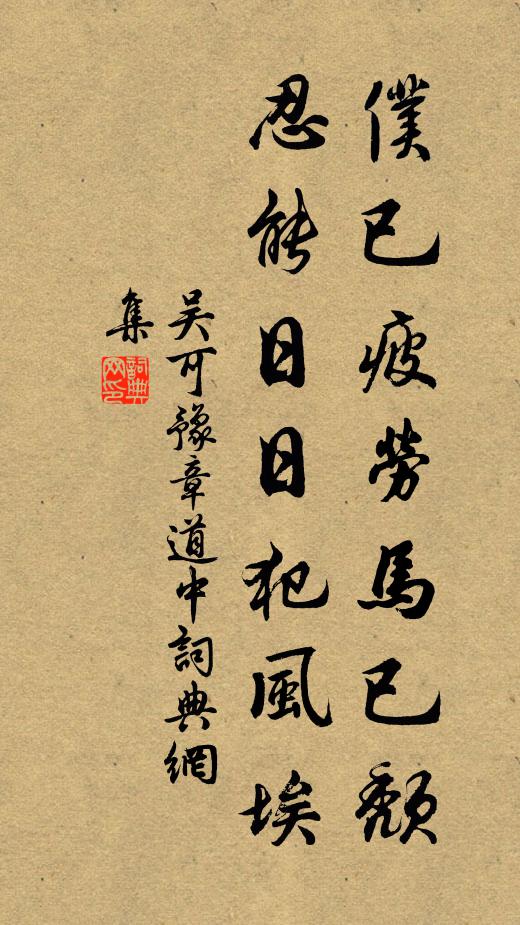 僕已疲勞馬已頹
忍能日日犯風埃
吳可豫章道中詞典網
集
詞典網印